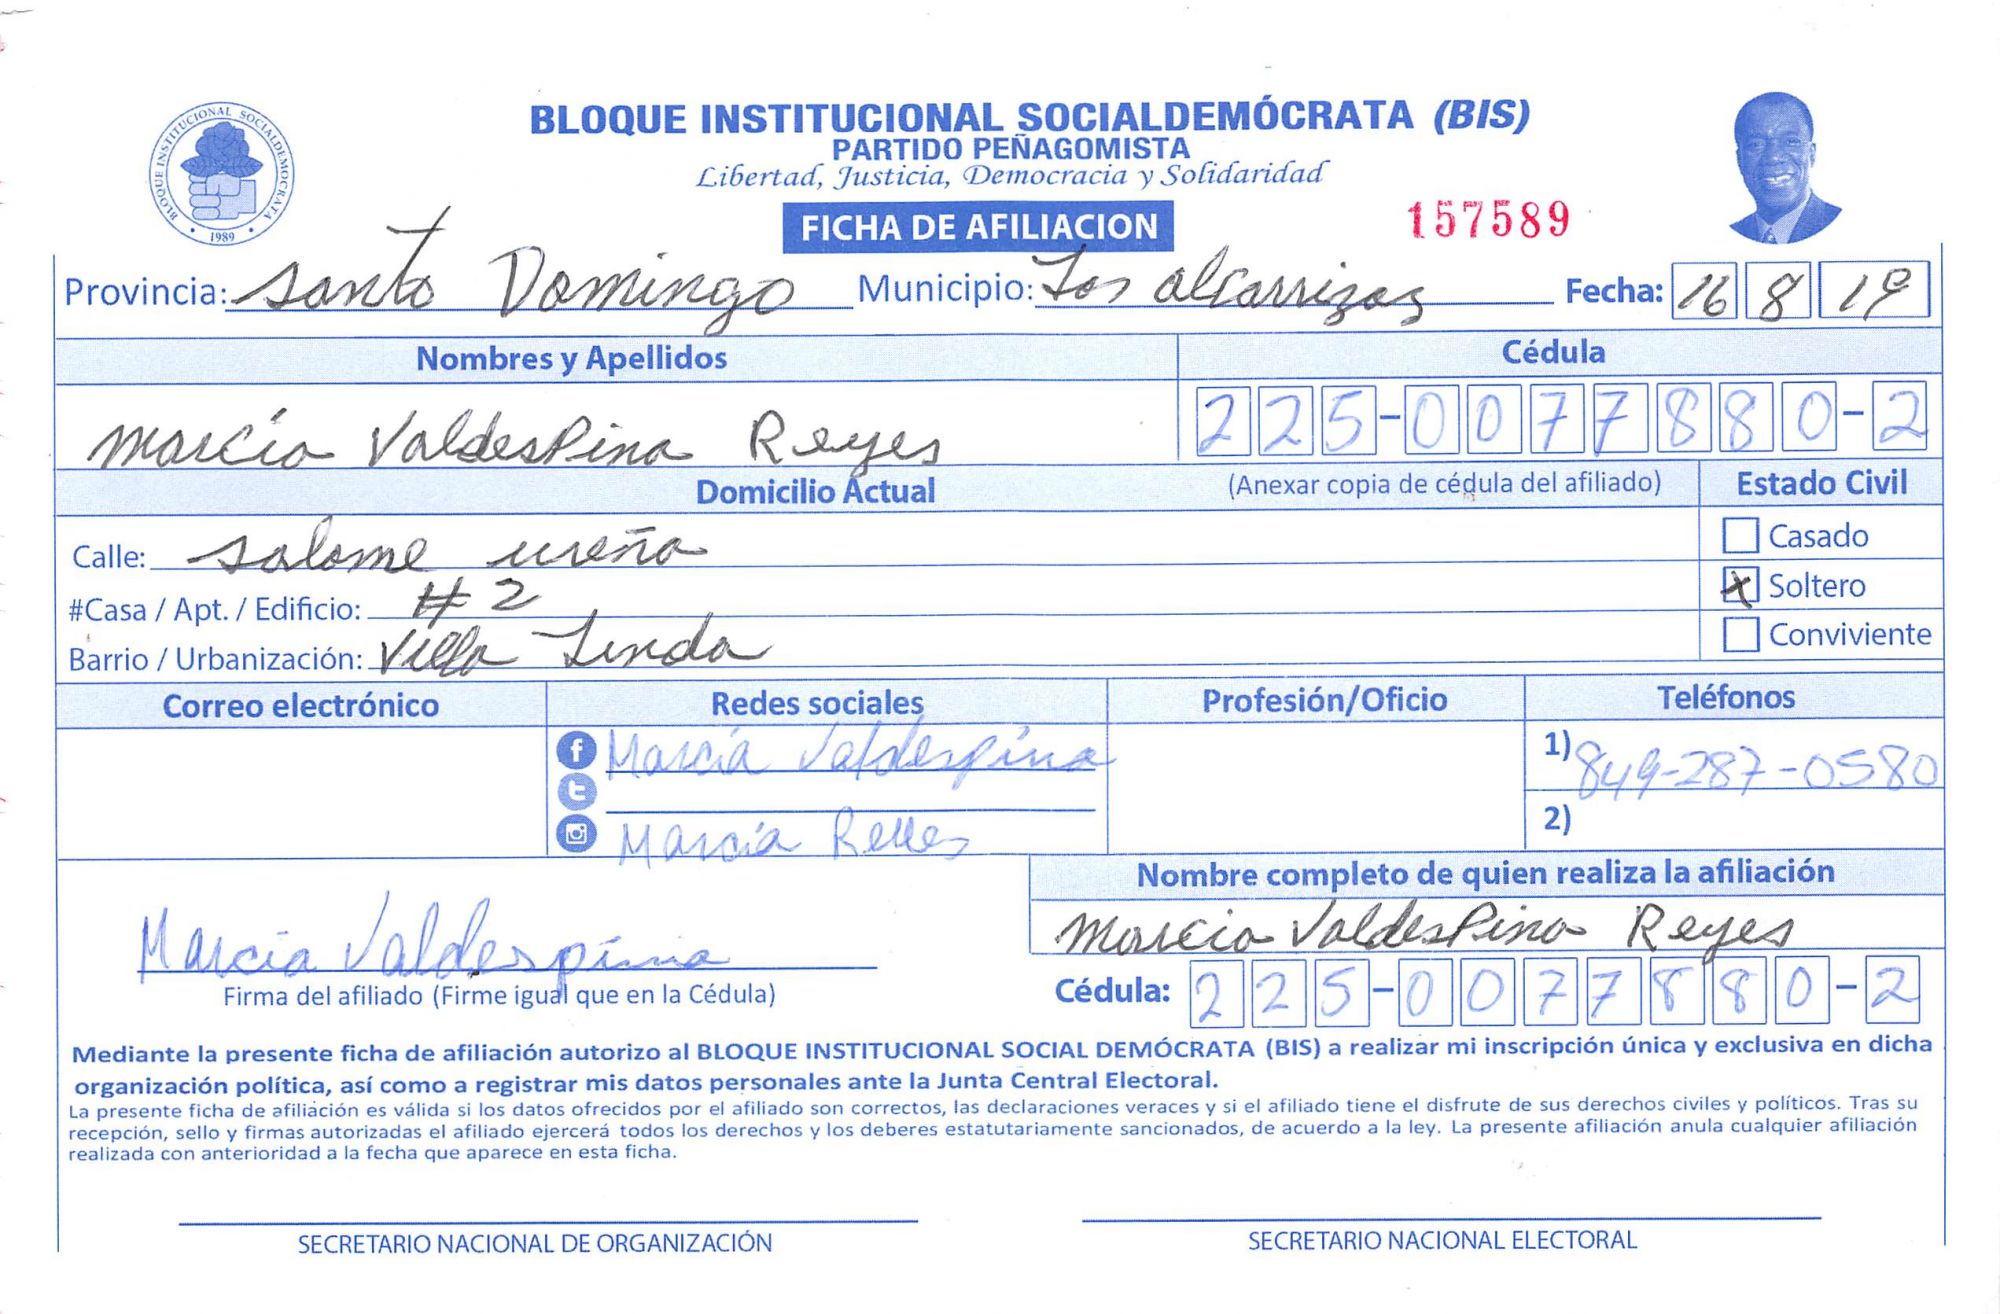 BLOQUE INSTITUCIONAL SOCIALDEMÓCRATA (BIS)
PARTIDO PEÑAGOMISTA
Libertad, Justicia, Democracia y Solidaridad
BLOQUE INSTITUCIONAL SOCIALDEMOCRATA
• 1989 •
FICHA DE AFILIACION
157589
Provincia: Santo Domingo Municipio: Los alcarrizos Fecha: 16 8 19
Nombres y Apellidos Cédula
Marcia Valdespina Reyes 225-0077880-2
Domicilio Actual (Anexar copia de cédula del afiliado) Estado Civil
Calle: Salome ureña Casado
#Casa / Apt. / Edificio: #2 X Soltero
Barrio / Urbanización: Villa Linda Conviviente
Correo electrónico Redes sociales Profesión/Oficio Teléfonos
Marcia Valdespina 1) 849-287-0580
Marcia Relles 2)
Nombre completo de quien realiza la afiliación
Marcia Valdespina Reyes
Marcia Valdespina
Firma del afiliado (Firme igual que en la Cédula) Cédula: 225-0077880-2
Mediante la presente ficha de afiliación autorizo al BLOQUE INSTITUCIONAL SOCIAL DEMÓCRATA (BIS) a realizar mi inscripción única y exclusiva en dicha
organización política, así como a registrar mis datos personales ante la Junta Central Electoral.
La presente ficha de afiliación es válida si los datos ofrecidos por el afiliado son correctos, las declaraciones veraces y si el afiliado tiene el disfrute de sus derechos civiles y políticos. Tras su
recepción, sello y firmas autorizadas el afiliado ejercerá todos los derechos y los deberes estatutariamente sancionados, de acuerdo a la ley. La presente afiliación anula cualquier afiliación
realizada con anterioridad a la fecha que aparece en esta ficha.
SECRETARIO NACIONAL DE ORGANIZACIÓN SECRETARIO NACIONAL ELECTORAL